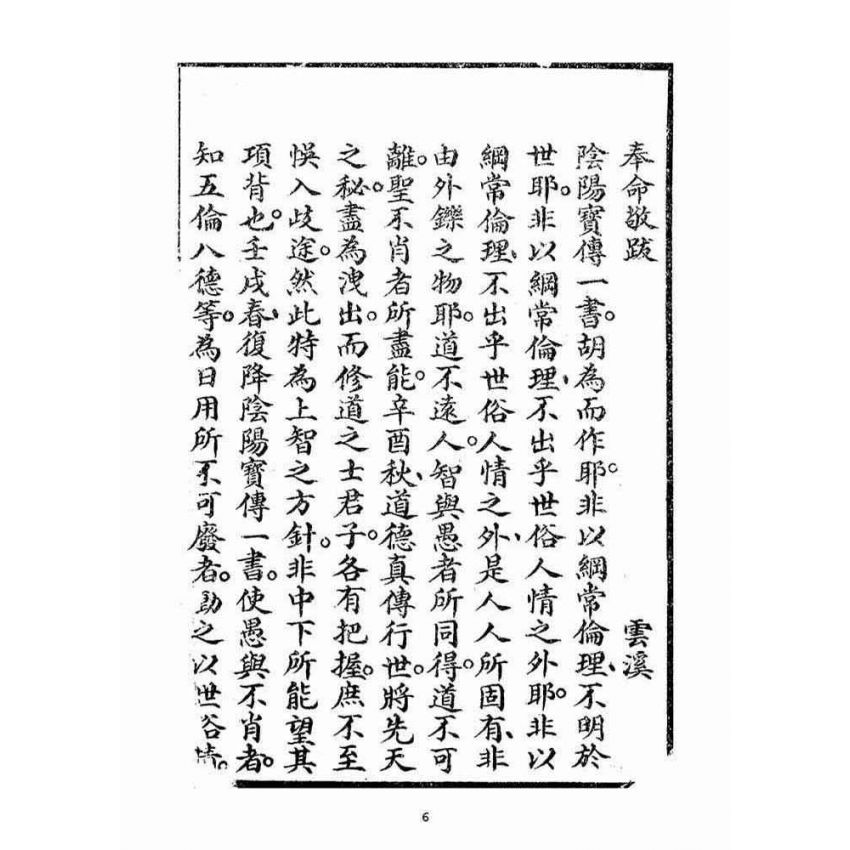 奉命敬跋 雲溪
陰陽寶傳一書。胡為而作耶。非以綱常倫理、不明於
世耶。非以綱常倫理、不出乎世俗人情之外耶。非以
綱常倫理、不出乎世俗人情之外、是人人所固有、非
由外鑠之物耶。道不遠人。智與愚者所同得。道不可
離。聖不肖者所盡能。辛酉秋、道德真傳行世。將先天
之秘。盡為洩出。而修道之士君子。各有把握。庶不至
悞入歧途。然此特為上智之方針。非中下所能望其
項背也。壬戌春、復降陰陽寶傳一書。使愚與不肖者。
知五倫八德等。為日用所不可廢者。勸之以世俗情。
6